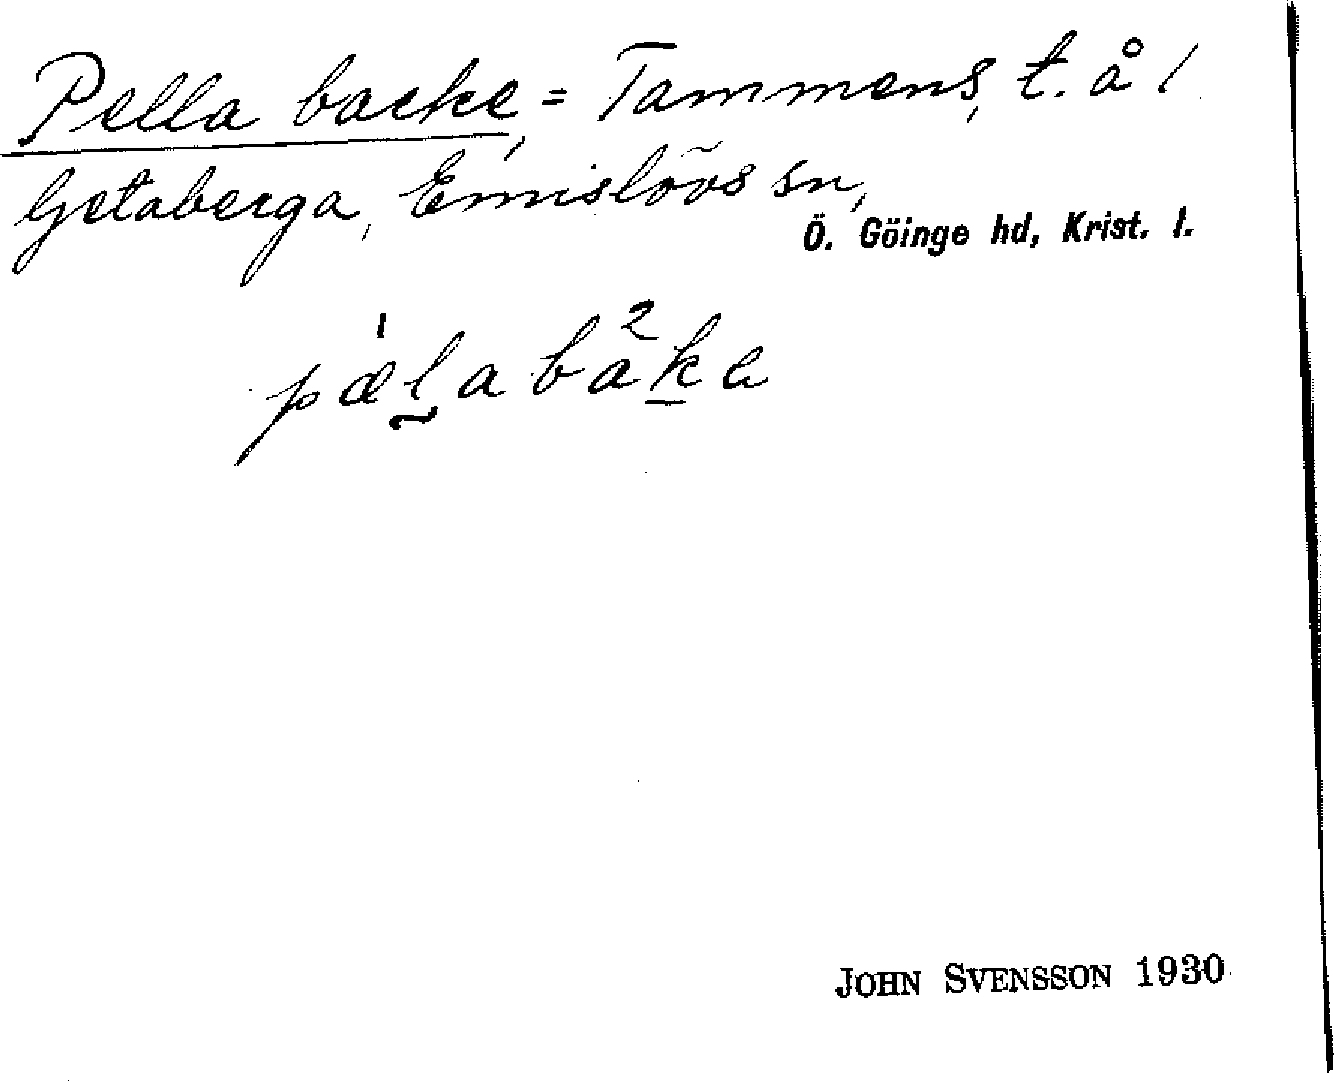 Pella backe, = Tammens, t. å 1
Getaberga, Emislövs sn,
Ö. Göinge hd, Krist. l.
pæ¹la ba²ka
JOHN SVENSSON 1930